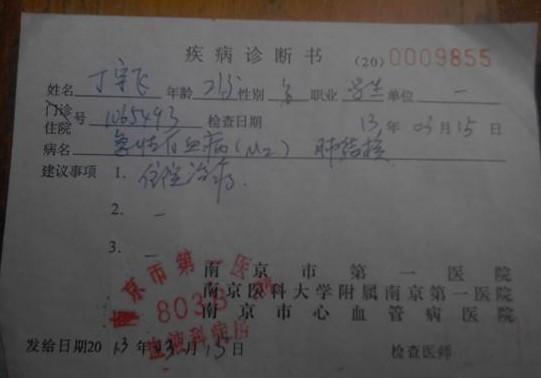 疾病诊断书 (20) 0009855
姓名 丁宇飞 年龄 性别 男 职业 学生 单位 一
门诊
住院 号 1065493 检查日期 13年03月15日
病名 急性白血病(M2) 肺结核
建议事项 1. 住院治疗.
2. 一
3. 一
南京市第一医院
南京医科大学附属南京第一医院
南京市心血管病医院
南京市第一医院
8033
血液科病房
发给日期2013年03月15日 检查医师